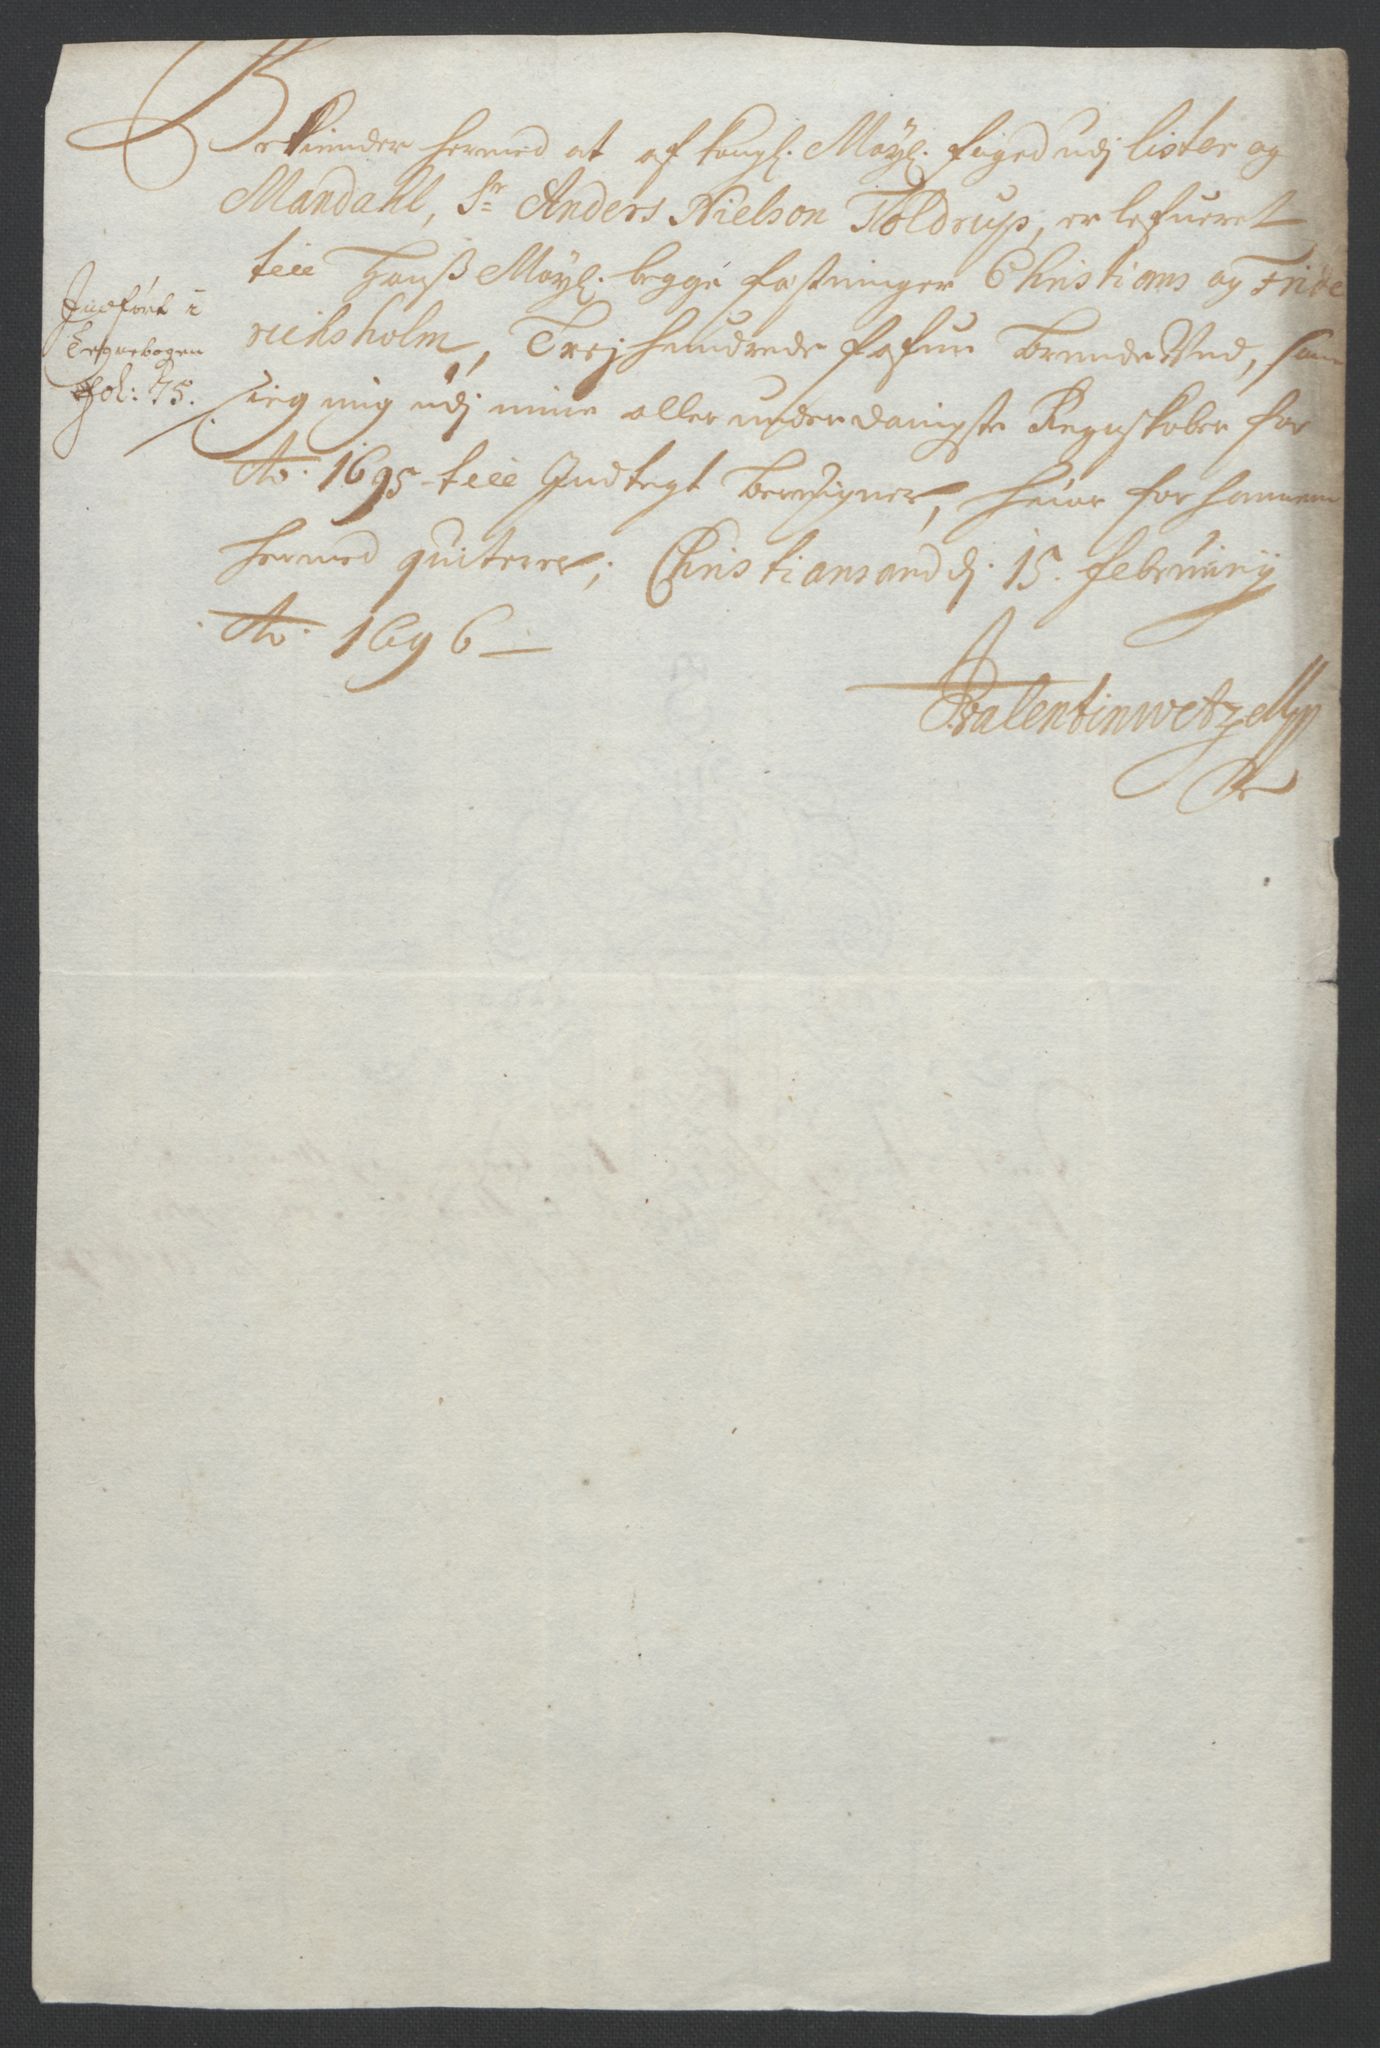 Bekiender hermed at af Kongl: Mayt: foged udj Lister og
Mandahl, Sr Anders Nielson Toldrup, er lefueret
till Hanß Mayt: begge fæstninger Christians og Fride
richsholm, Trej hundrede fafun Brende Ved, som
Jeg mig udj mine allerunderdanigste Regnskober for
Ao: 1695 till Indtegt beregner, huor for hannem
hermed quiterer; Christiansand dj: 15. februarij
Ao: 1696
Valentin Wetzell
Indført i
Tegnebogen
fol: 75.